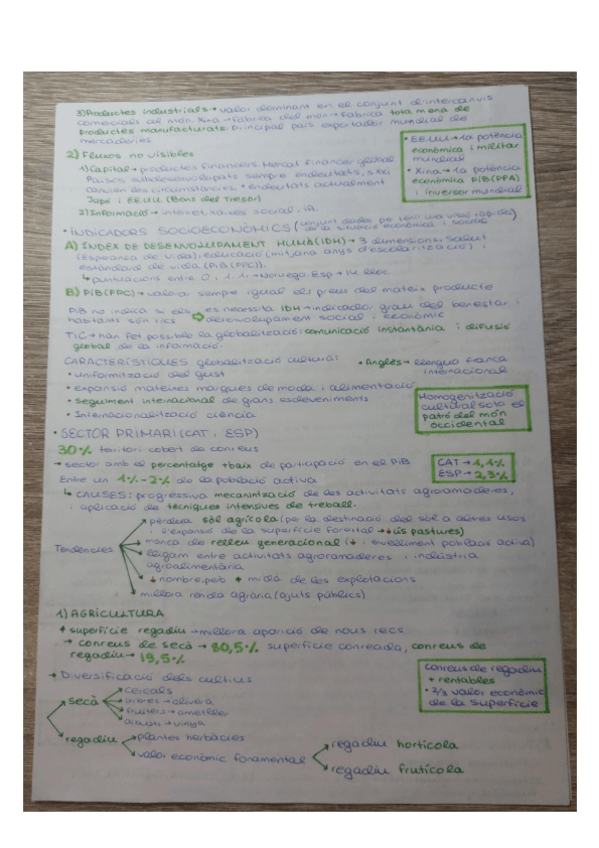 3) Productes industrials → valor dominant en el conjunt d'intercanvis
comercials al món. Xina → fàbrica del món → fabrica tota mena de
productes manufacturats. Principal país exportador mundial de
mercaderies
• EE.UU → 1a potència
econòmica i militar
mundial
• Xina → 1a potència
econòmica PIB (PPA)
i inversor mundial
2) Fluxos no visibles
1) Capital → productes financers Mercat financer global
Països subdesenvolupats sempre endeutats, s.XXI
canvien les circumstàncies. + endeutats actualment
Japó i EE.UU (Bons del Tresor)
2) Informació → internet, xarxes social, IA.
• INDICADORS SOCIOECONÒMICS (conjunt dades per tenir una visió ràpida
de la situació econòmica i social)
A) ÍNDEX DE DESENVOLUPAMENT HUMÀ (IDH) → 3 dimensions. Salut
(Esperança de vida); educació (mitjana anys d'escolarització) i
estàndard de vida (PIB (PPC)).
↳ puntuacions entre 0 i 1. 1. → Noruega Esp → 14 lloc.
B) PIB (PPC) → valora sempre igual els preus del mateix producte
PIB no indica si els
habitants són rics
⇒ es necessita IDH → indicador grau del benestar i
desenvolupament social i econòmic
TIC → han fet possible la globalització: comunicació instantània i difusió
global de la informació.
CARACTERÍSTIQUES globalització cultural:
• uniformització del gust
• expansió mateixes marques de moda i alimentació
• seguiment internacional de grans esdeveniments
• Internacionalització ciència
• Anglès → llengua franca
internacional
Homogenització
cultural sota el
patró del món
occidental
• SECTOR PRIMARI (CAT i ESP)
30% territori cobert de conreus
→ sector amb el percentatge + baix de participació en el PIB
Entre un 1%-2% de la població activa
CAT → 1,1%
ESP → 2,3%
↳ CAUSES: progressiva mecanització de les activitats agroramaderes,
i aplicació de tècniques intensives de treball.
Tendències
pèrdua sòl agrícola (per la destinació del sòl a altres usos
i d'expansió de la superfície forestal → ↓ ús pastures)
manca de relleu generacional (↓ i envelliment població activa)
lligam entre activitats agroramaderes i indústria
agroalimentària
↓ nombre, però + mida de les explotacions
millora renda agrària (ajuts públics)
1) AGRICULTURA
+ superfície regadiu → millora aparició de nous recs
→ conreus de secà → 80,5% superfície conreada, conreus de
regadiu → 19,5%
→ Diversificació dels cultius
Conreus de regadiu
+ rentables
• 2/3 valor econòmic
de la superfície
secà
cereals
arbres → olivera
fruiters → ametller
arbusts → vinya
regadiu
plantes herbàcies
valor econòmic fonamental
regadiu hortícola
regadiu frutícola